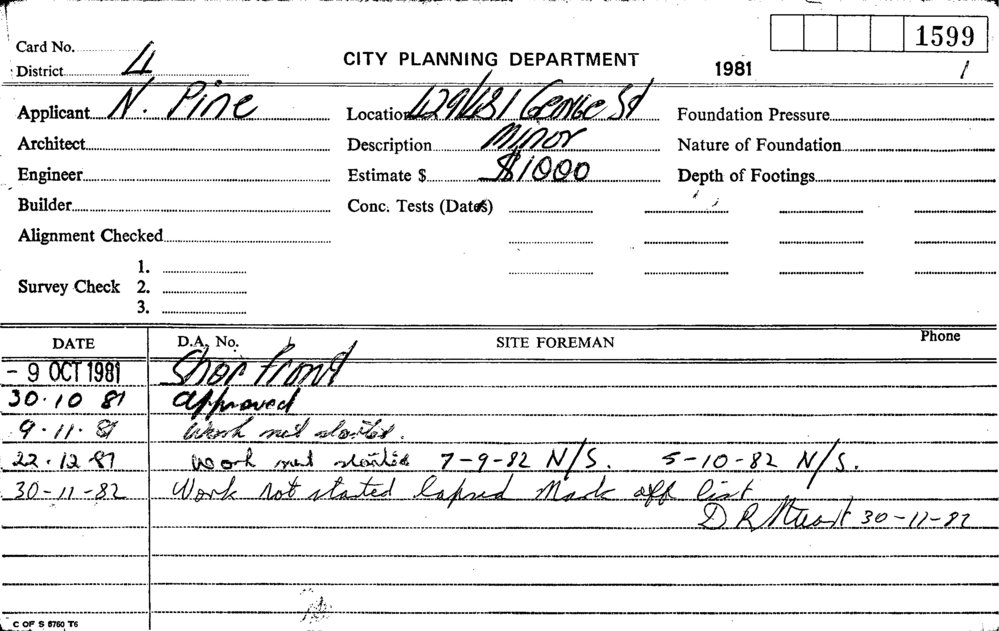 1599
Card No.
District 4
CITY PLANNING DEPARTMENT
1981
1
Applicant N. Pine
Location 429/481 George St
Foundation Pressure
Architect
Description Minor
Nature of Foundation
Engineer
Estimate $ $1000
Depth of Footings
Builder
Conc. Tests (Dates)
Alignment Checked
Survey Check
1.
2.
3.
DATE D.A. No. SITE FOREMAN Phone
- 9 OCT 1981 Shop Front
30.10 81 approved
9.11.81 Work not started.
22.12.81 Work not started 7-9-82 N/S. 5-10-82 N/S.
30-11-82 Work not started lapsed Mark off list
D R Stuart 30-11-82
C OF S 5760 T6